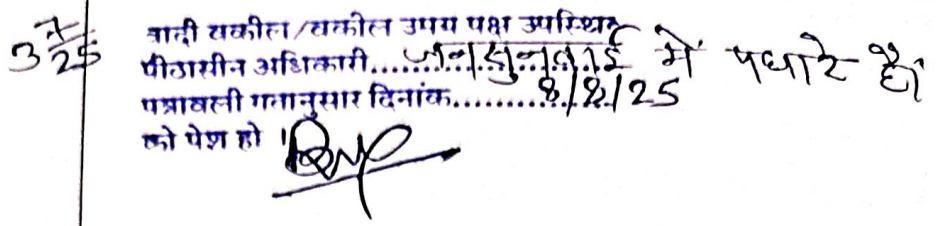 3/7/25
वादी वकील/वकील उभय पक्ष उपस्थित
पीठासीन अधिकारी......जनसुनवाई में पधारे हैं।
पत्रावली गतानुसार दिनांक.........8/8/25
को पेश हो।